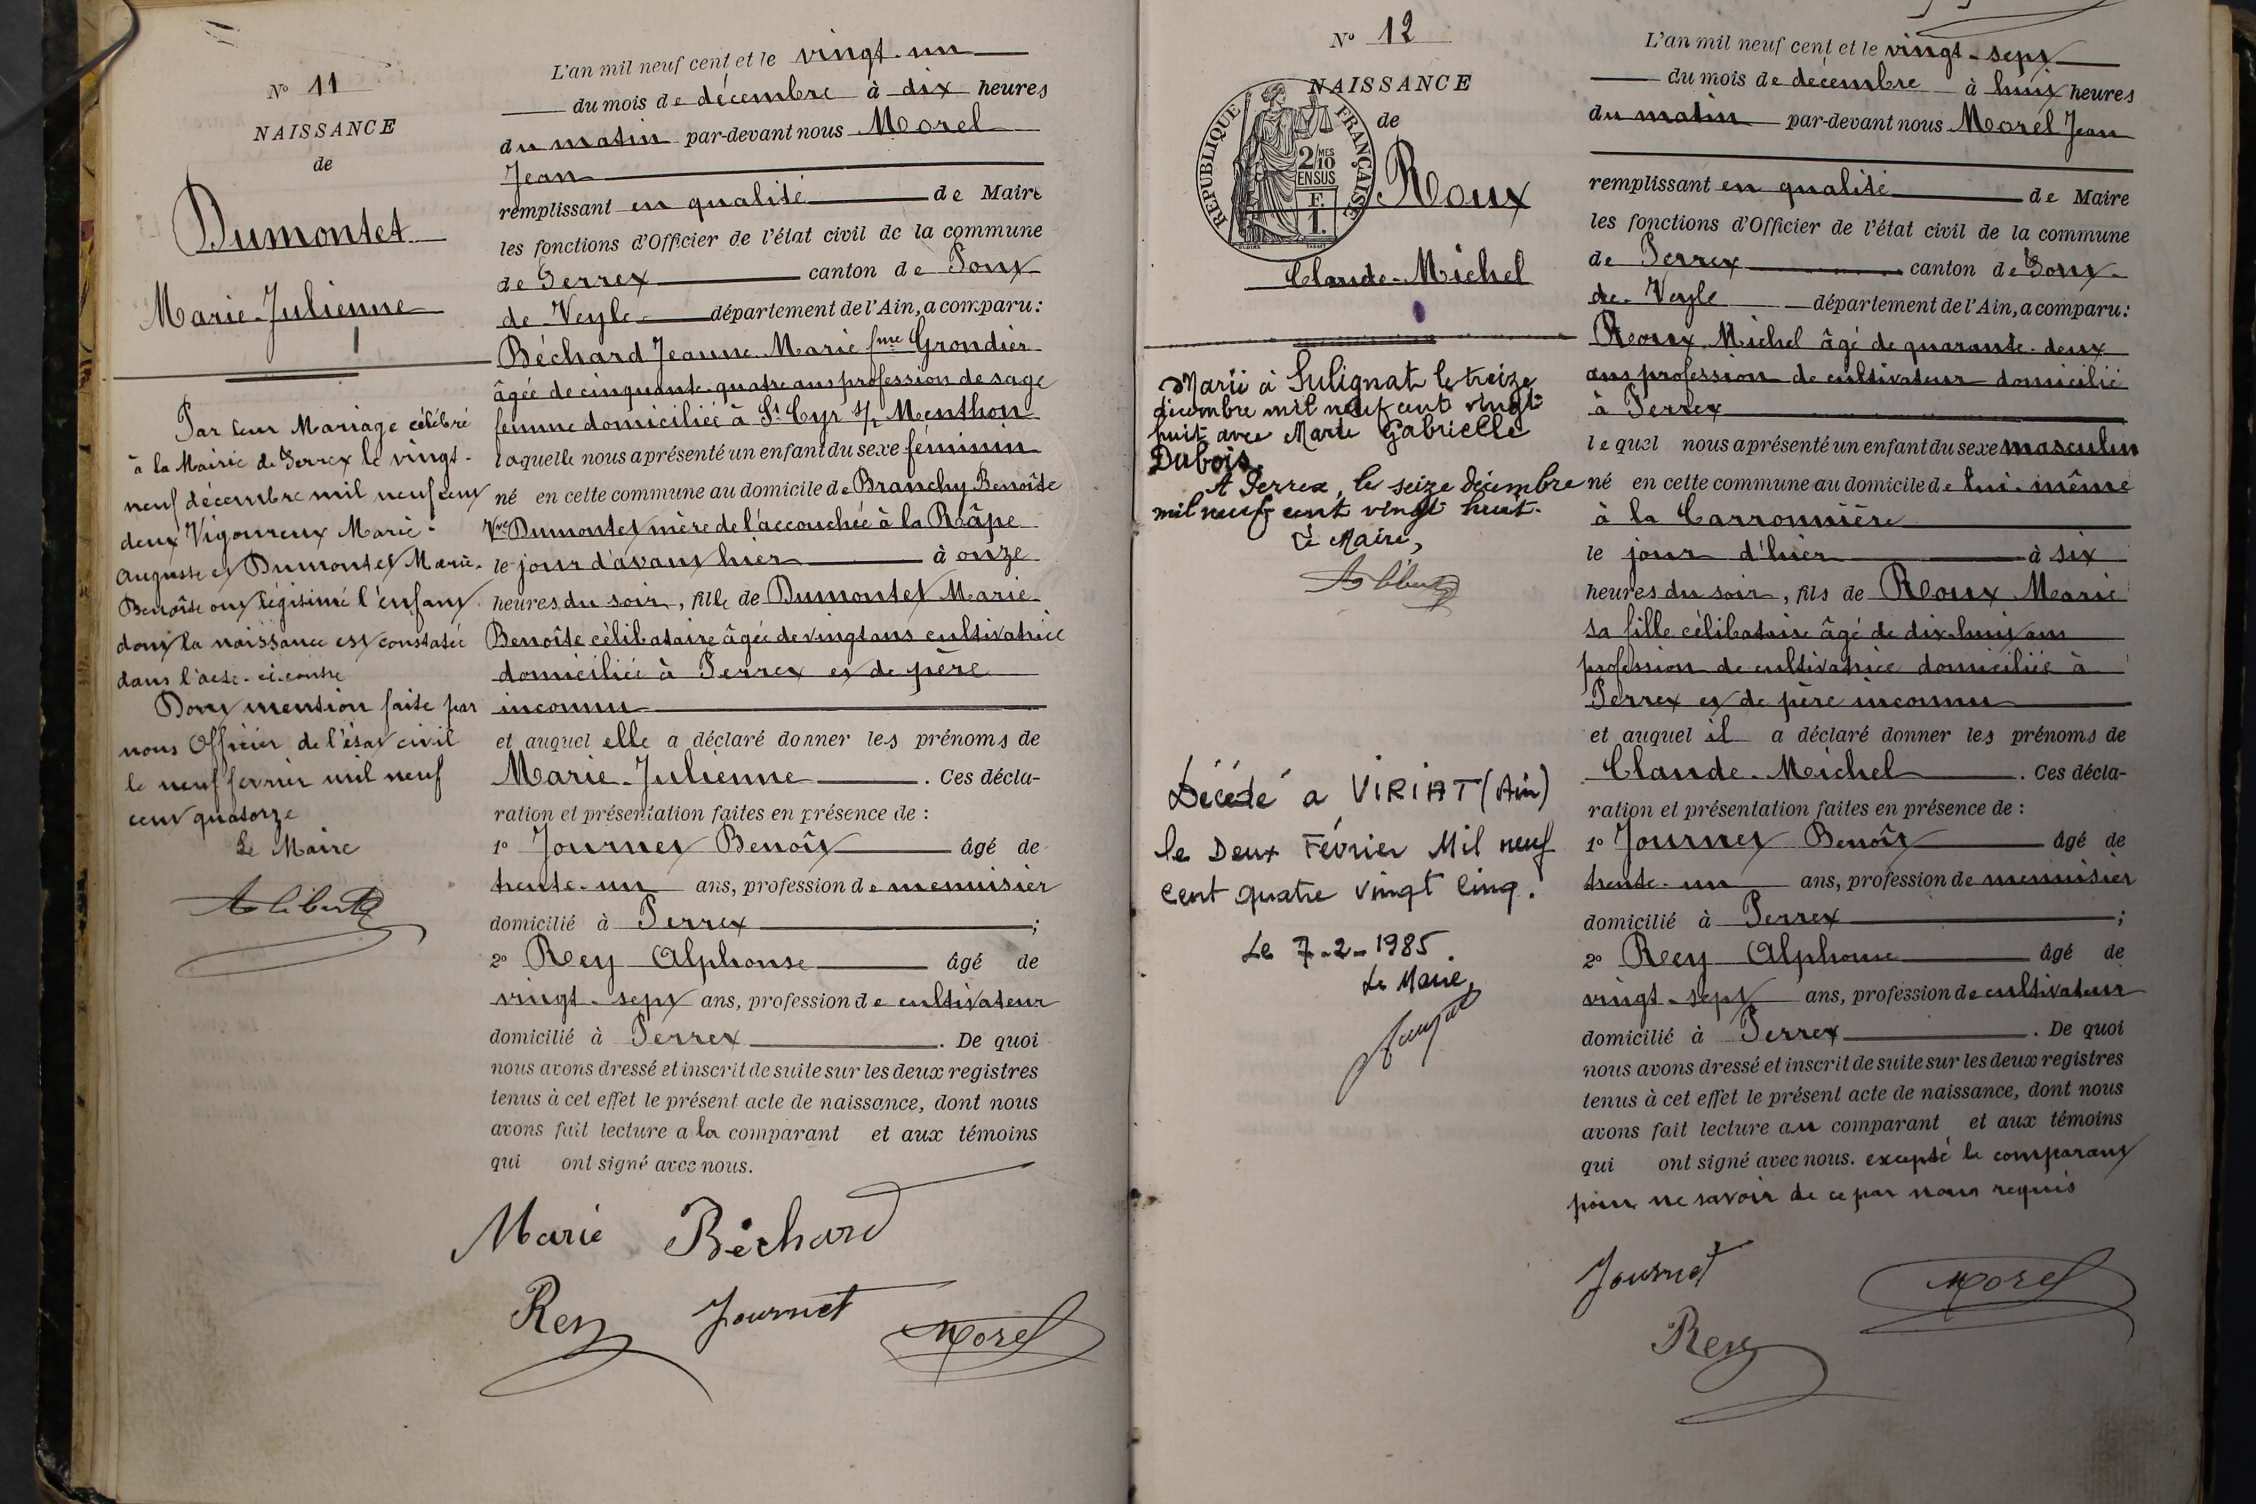 N° 11
NAISSANCE
de
Dumontet
Marie-Julienne
Par leur Mariage célébré
à la Mairie de Perrex le vingt-
neuf décembre mil neuf cent
deux Vigoureux Marie-
Auguste et Dumontet Marie-
Benoîte ont légitimé l'enfant
dont la naissance est constatée
dans l'acte ci-contre
Dont mention faite par
nous Officier de l'état civil
le neuf février mil neuf
cent quatorze
Le Maire
L'an mil neuf cent et le vingt-un
du mois de décembre à dix heures
du matin par-devant nous Morel
Jean
remplissant en qualité de Maire
les fonctions d'Officier de l'état civil de la commune
de Perrex canton de Pont
de Veyle département de l'Ain, a comparu:
Béchard Jeanne Marie fme Grondier
âgée de cinquante-quatre ans profession de sage
femme domiciliée à St Cyr s/ Menthon
laquelle nous a présenté un enfant du sexe féminin
né en cette commune au domicile de Branchy Benoîte
Vve Dumontet mère de l'accouchée à la Râpe
le jour d'avant hier à onze
heures du soir, fille de Dumontet Marie
Benoîte célibataire âgée de vingt ans cultivatrice
domiciliée à Perrex et de père
inconnu
et auquel elle a déclaré donner les prénoms de
Marie-Julienne. Ces décla-
ration et présentation faites en présence de :
1° Journet Benoît âgé de
trente-un ans, profession de menuisier
domicilié à Perrex ;
2° Rey Alphonse âgé de
vingt-sept ans, profession de cultivateur
domicilié à Perrex. De quoi
nous avons dressé et inscrit de suite sur les deux registres
tenus à cet effet le présent acte de naissance, dont nous
avons fait lecture a la comparant et aux témoins
qui ont signé avec nous.
Marie Béchard
Rey Journet Morel
N° 12
NAISSANCE
de
RÉPUBLIQUE FRANÇAISE
2/10 MES
EN SUS
F.
1.
Roux
Claude-Michel
Marié à Sulignat le treize
décembre mil neuf cent vingt
huit avec Marie Gabrielle
Dubois.
A Perrex, le seize décembre
mil neuf cent vingt huit.
Le Maire,
Décédé à VIRIAT (Ain)
le Deux Février Mil neuf
cent quatre vingt cinq.
Le 7-2-1985.
Le Maire,
L'an mil neuf cent et le vingt-sept
du mois de décembre à huit heures
du matin par-devant nous Morel Jean
remplissant en qualité de Maire
les fonctions d'Officier de l'état civil de la commune
de Perrex canton de Pont
de Veyle département de l'Ain, a comparu:
Roux Michel âgé de quarante-deux
ans profession de cultivateur domicilié
à Perrex
lequel nous a présenté un enfant du sexe masculin
né en cette commune au domicile de lui-même
à la Carronnière
le jour d'hier à six
heures du soir, fils de Roux Marie
sa fille célibataire âgé de dix-huit ans
profession de cultivatrice domiciliée à
Perrex et de père inconnu
et auquel il a déclaré donner les prénoms de
Claude-Michel. Ces décla-
ration et présentation faites en présence de :
1° Journet Benoît âgé de
trente-un ans, profession de menuisier
domicilié à Perrex ;
2° Rey Alphonse âgé de
vingt-sept ans, profession de cultivateur
domicilié à Perrex. De quoi
nous avons dressé et inscrit de suite sur les deux registres
tenus à cet effet le présent acte de naissance, dont nous
avons fait lecture au comparant et aux témoins
qui ont signé avec nous. excepté le comparant
pour ne savoir de ce par nous requis
Journet Morel
Rey